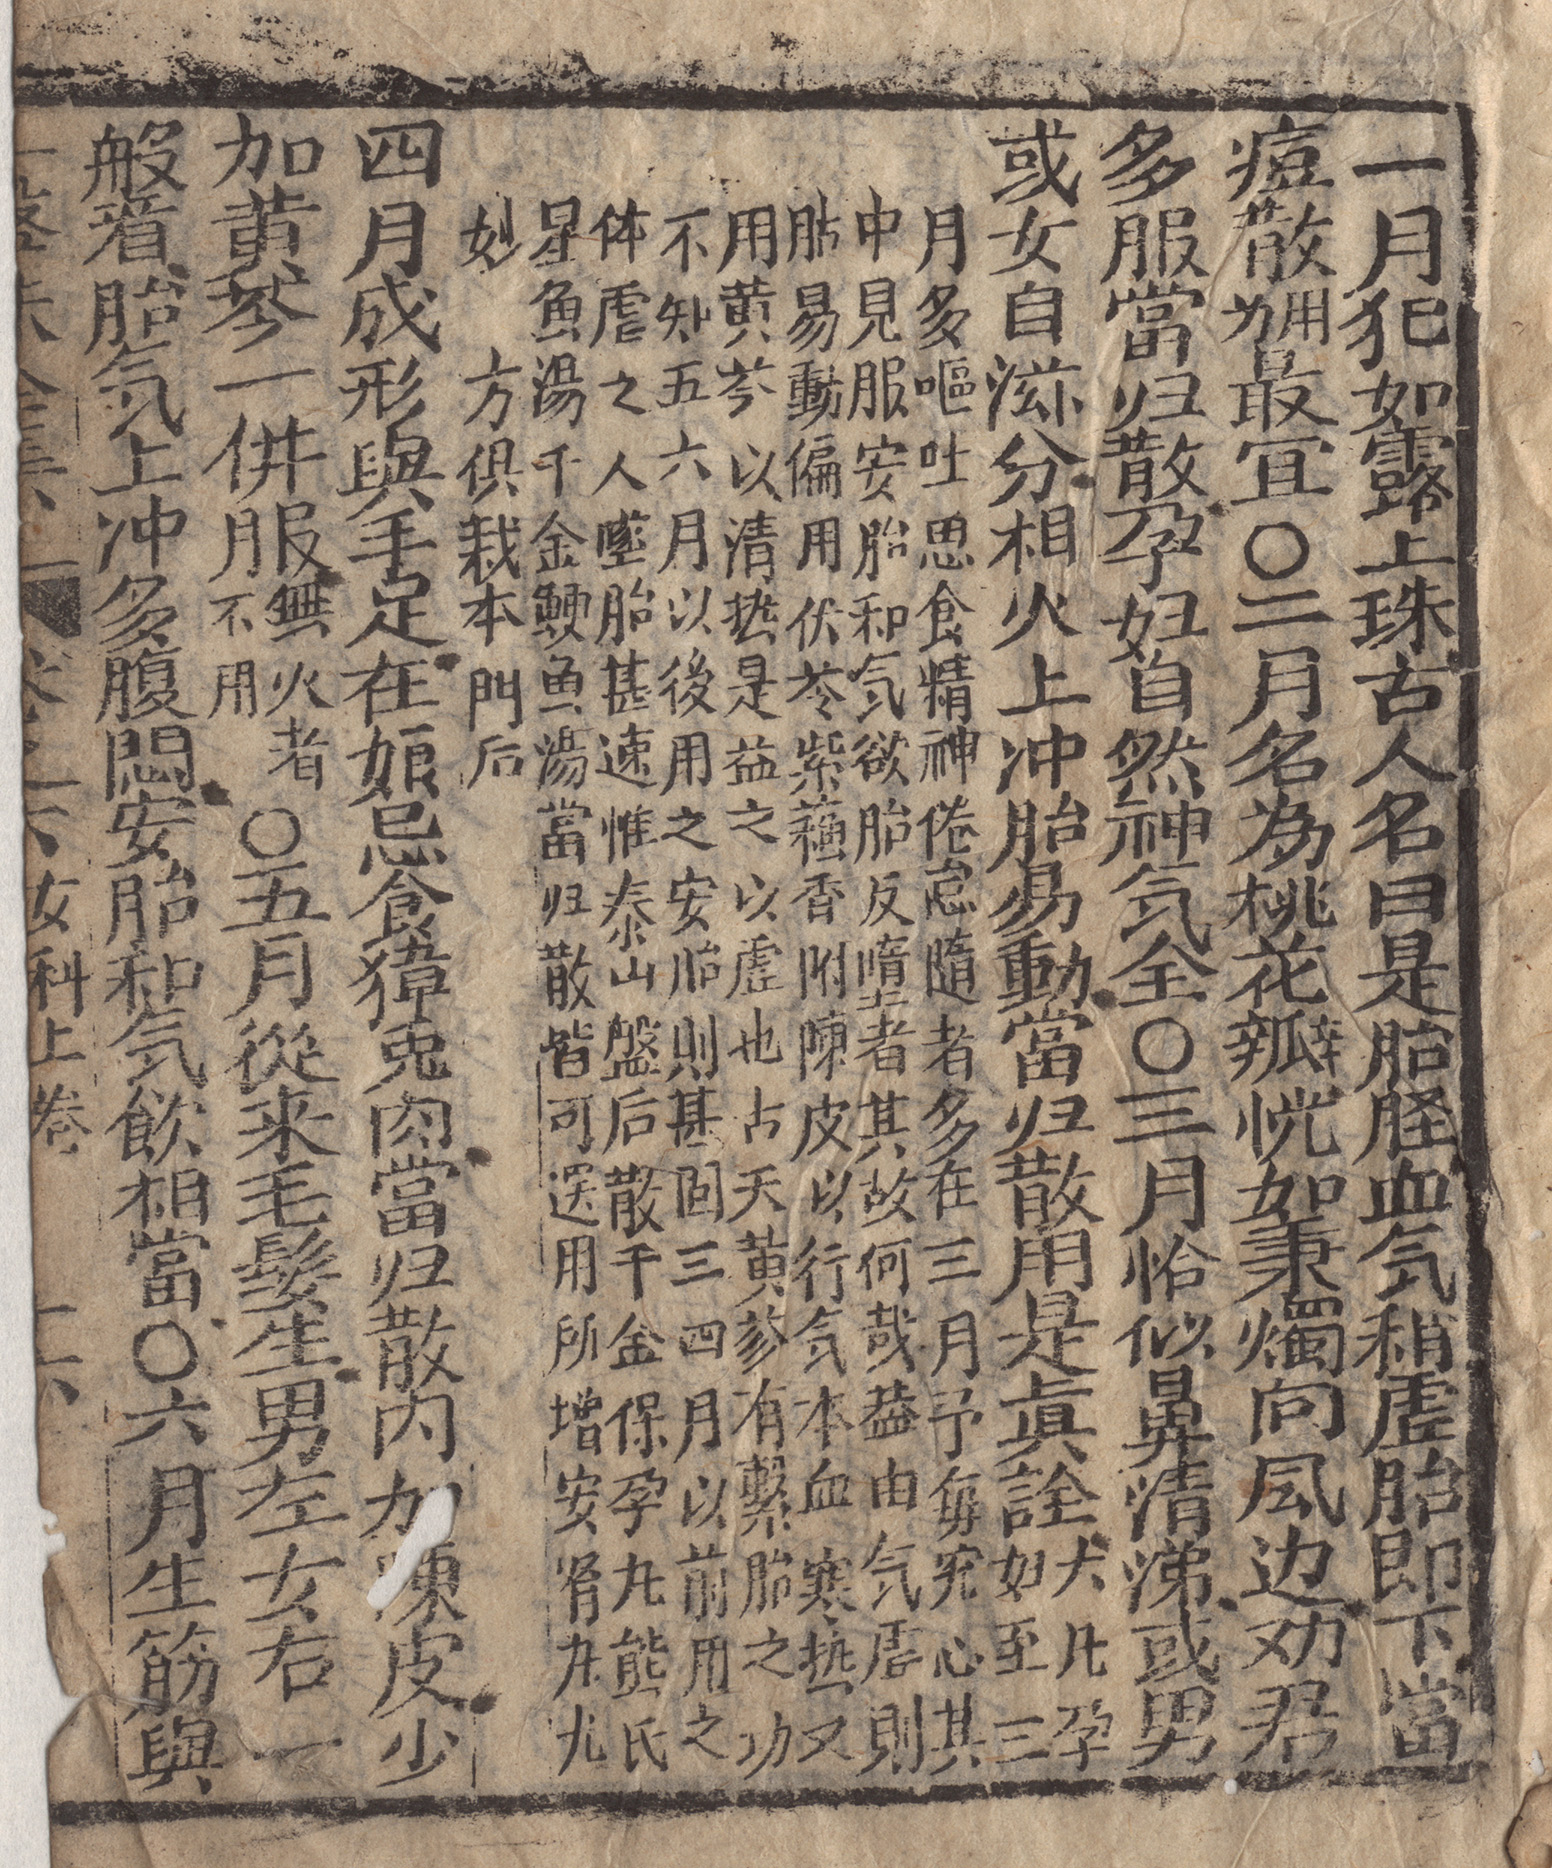 一月犯如露上珠古人名曰是胎胚血気稍虚胎即下當
痘散為用最宜〇二月名為桃花瓣恍如秉燭向風边劝君
多服當归散孕妇自然神気全〇三月恰似鼻清涕或男
或女自滋分相火上冲胎易動當归散用是真詮犬凡孕
如至三
月多嘔吐思食精神倦怠隨者多在三月予毎究心其
中見服安胎和気欲胎反墮者其故何哉蓋由気虚則
胎易動偏用伏苓紫蘓香附陳皮以行気本血寒热又
用黄芩以清热是益之以虚也占天黄芩有繫胎之功
不知五六月以後用之安胎則甚固三四月以前用之
体虚之人墜胎甚速惟泰山盤后散千金保孕丸熊氏
星魚湯千金鯉魚湯當归散皆可選用所增安肾丸尤
妙 方俱栽本門后
四月成形與手足在娘忌食獐兎肉當归散内加陳皮少
加黄芩一併服無火者
不用〇五月從来毛髮生男左女右一
般着胎気上冲多腹悶安胎和気飲相當〇六月生筋與
女科上卷 一六